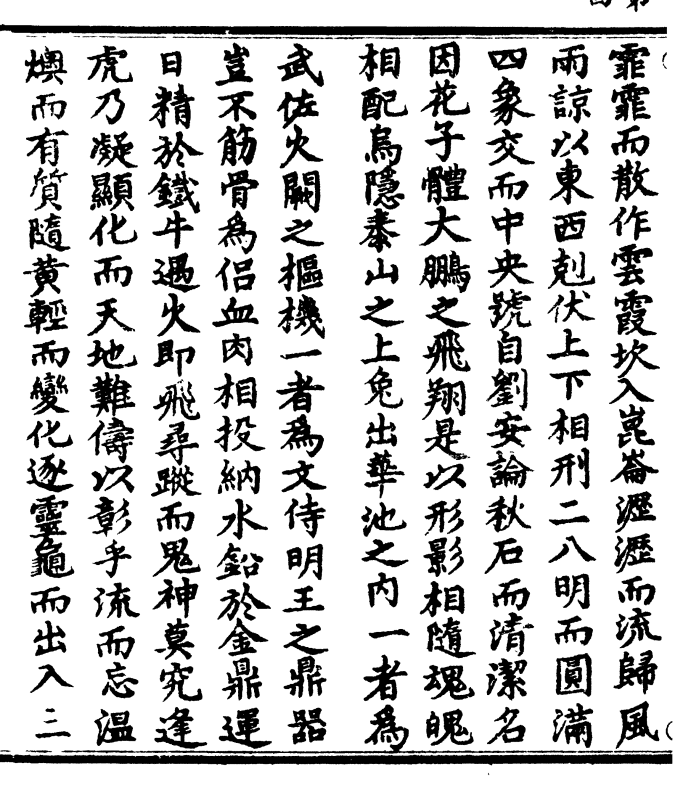 霏霏而散作雲霞坎入崑崙瀝瀝而流歸風
雨諒以東西剋伏上下相刑二八明而圓滿
四象交而中央號自劉安論秋石而清潔名
因花子體大鵬之飛翔是以形影相隨魂魄
相配烏隱泰山之上兔出華池之內一者為
武佐火闕之樞機一者為文侍明王之鼎器
豈不筋骨為侶血肉相投納水鈆於金鼎運
日精於鐵牛遇火即飛尋蹤而鬼神莫究逢
虎乃凝顯化而天地難儔以彰乎流而忘溫
燠而有質隨黃輕而變化逐靈龜而出入三